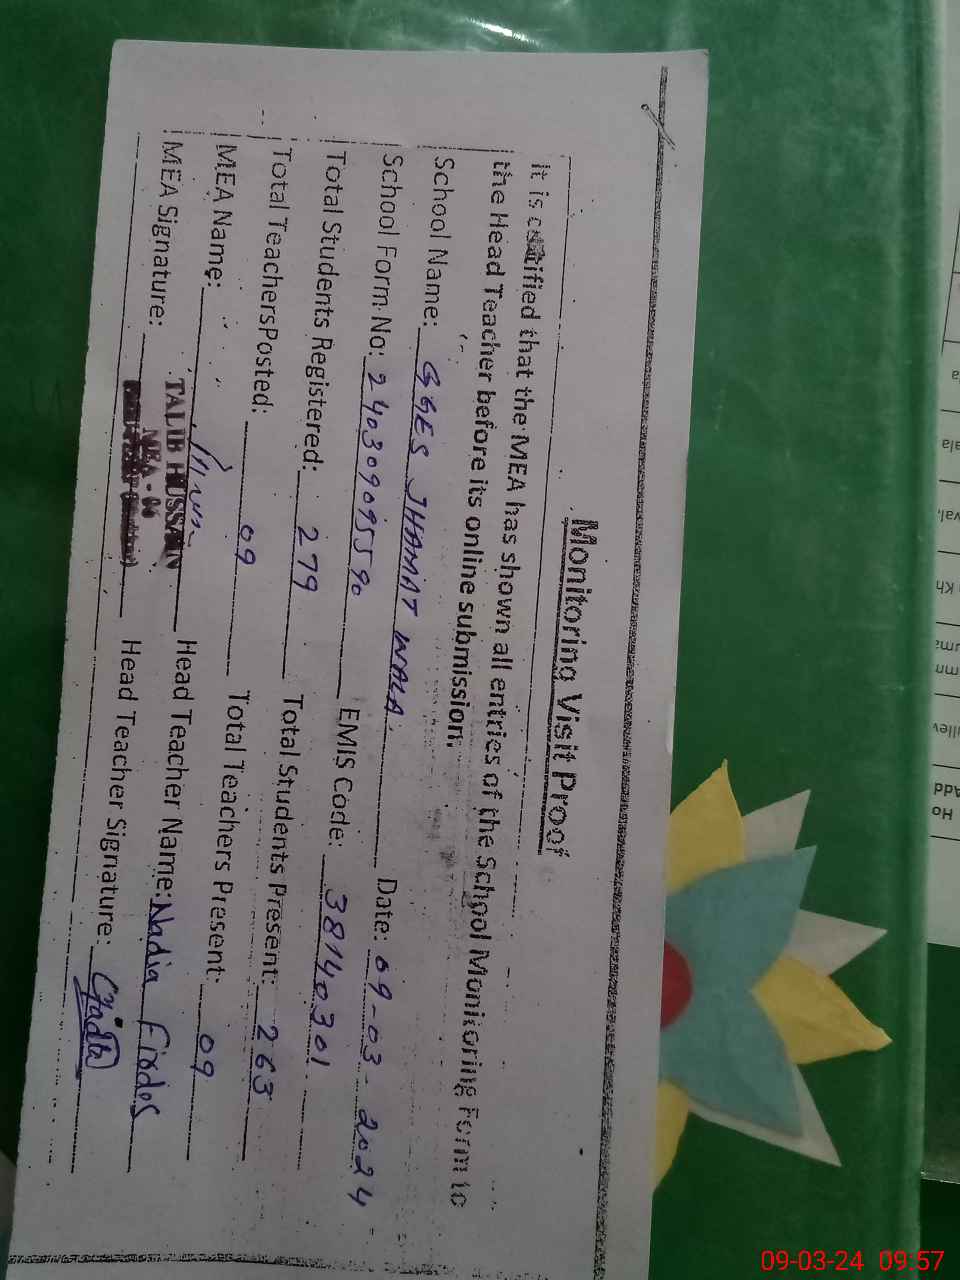 Monitoring Visit Proof
It is certified that the MEA has shown all entries of the School Monitoring Form to
the Head Teacher before its online submission.
School Name: GGES JHAMAT WALA Date: 09-03-2024
School Form No: 240309095590 EMIS Code: 38140301
Total Students Registered: 279 Total Students Present: 263
Total TeachersPosted: 09 Total Teachers Present: 09
MEA Name: Head Teacher Name: Nadia Firdos
TALIB HUSSAIN
MEA Signature: MEA - 06 Head Teacher Signature:
Ho
Add
09-03-24 09:57